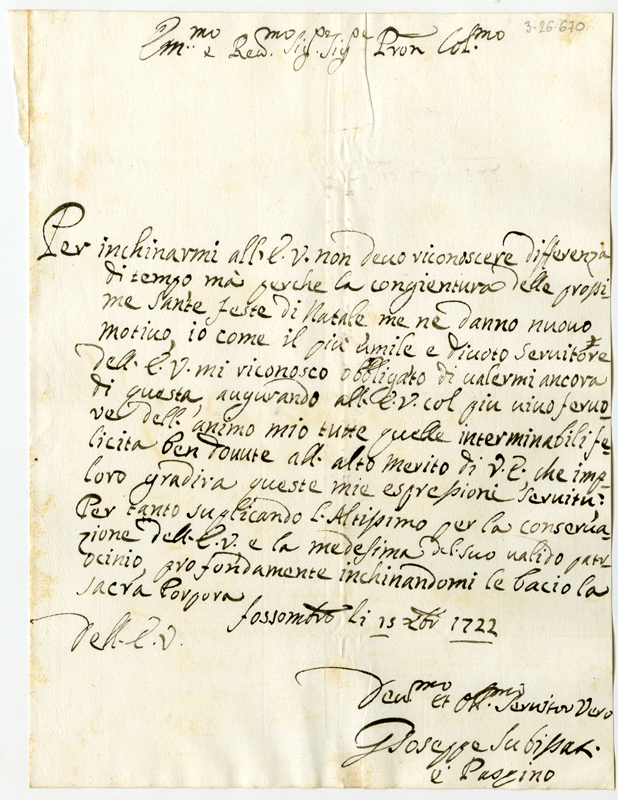 3-26-670
Em.mo e Rev.mo Sig.re Sig.re Pron Col.mo
Per inchinarmi all. E. V. non devo riconoscere differenza
di tempo mà perche la congientura delle prossi-
me Sante feste di Natale me ne danno nuovo
motivo, io come il più umile e divoto Servitore
dell. E. V. mi riconosco obbligato di valermi ancora
di questa, augurando all. E. V. col più vivo fervo
re dell'animo mio tutte quelle interminabili fe-
licita ben dovute all. alto merito di V. E. che imp-
loro gradira queste mie espressioni, Servitù.
Per tanto suplicando l. Altissimo per la conserva-
zione dell. E. V. e la medesima del. suo valido patr
ocinio, profondamente inchinandomi le bacio la
sacra Porpora
Dell. E. V.
fossombro li 15 Xbr 1722
Dev.mo et Obl.mo Servitor Vero
Gioseppe
e Paspino